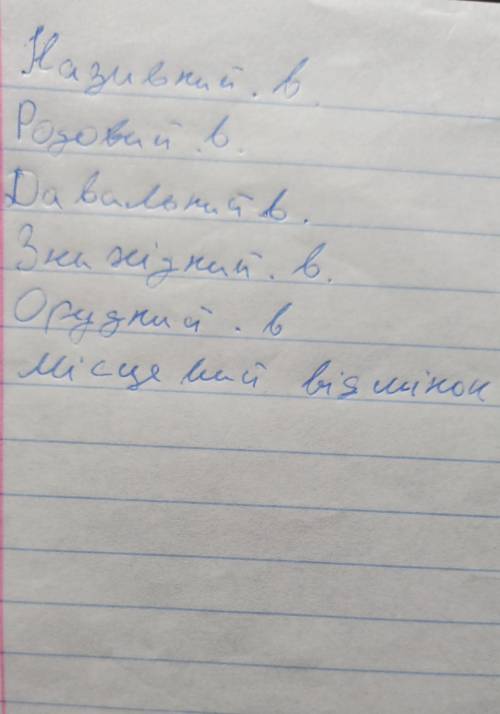 Називний. в.
Родовий. в.
Давальний в.
Знахідний. в.
Орудний. в
Місцевий відмінок